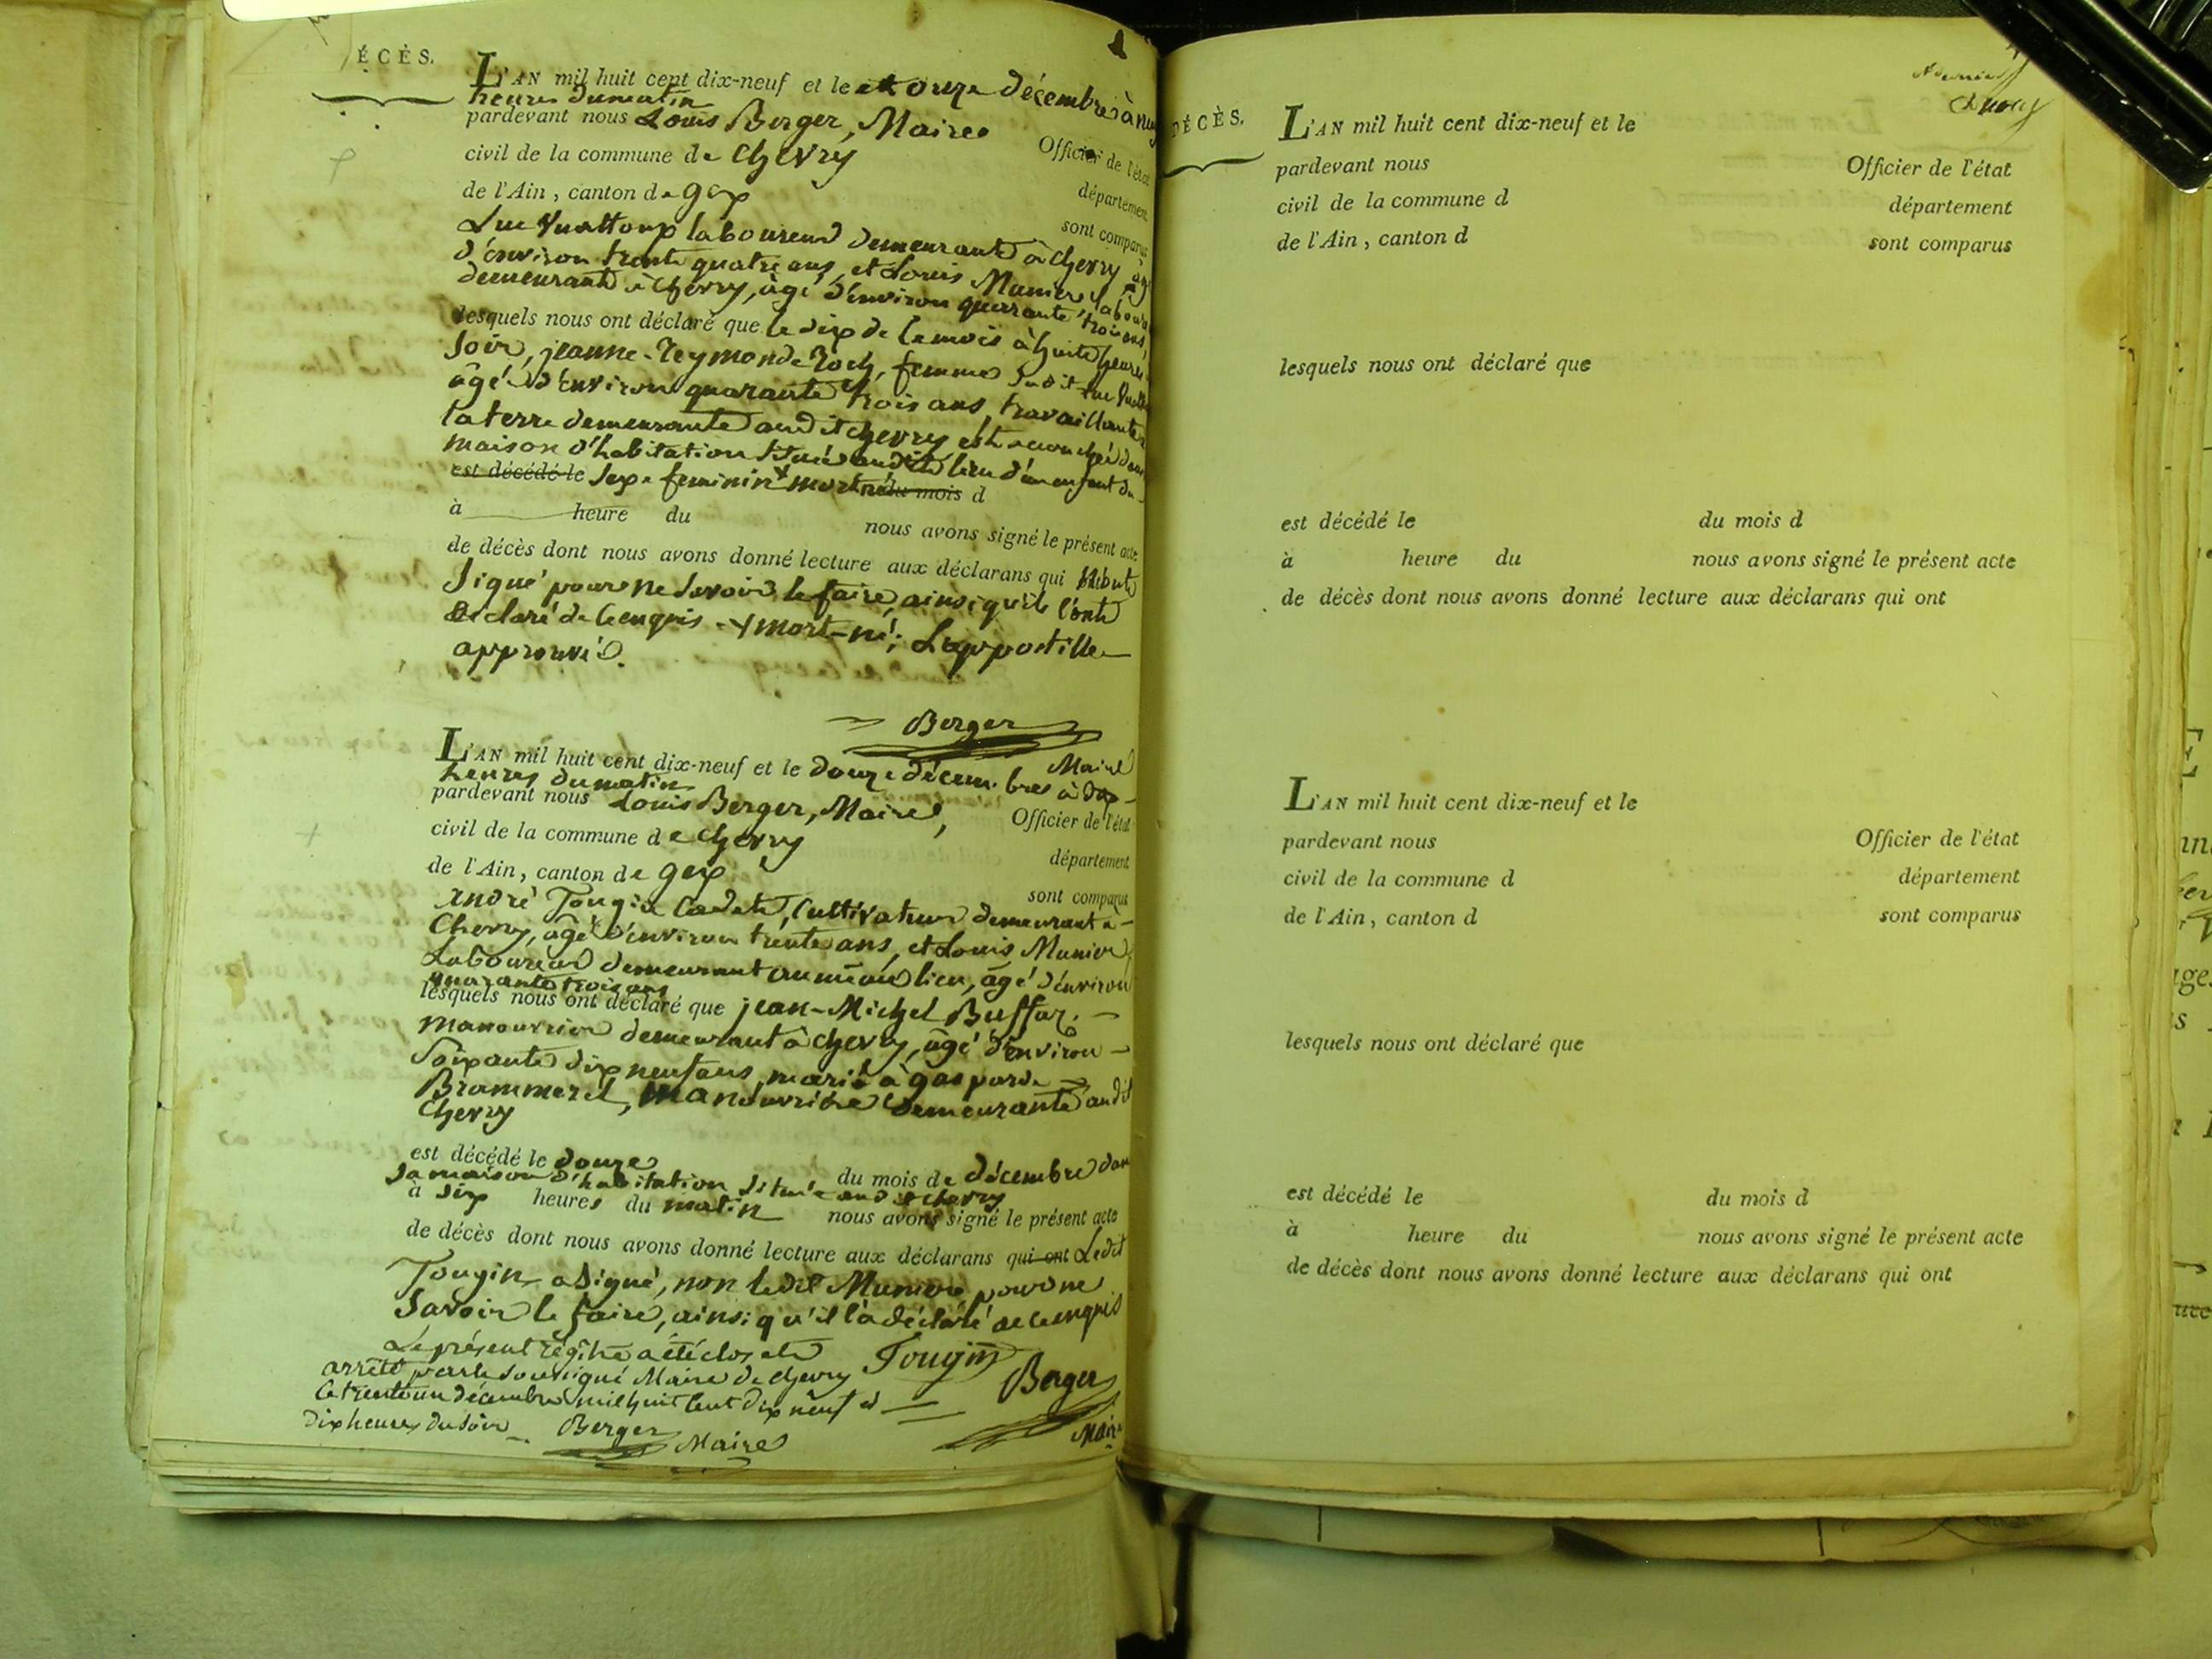 ÉCÈS.
L'AN mil huit cent dix-neuf et le onze décembre à neuf
heures du matin
pardevant nous Louis Berger, Maire Officier de l'état
civil de la commune de Chevry département
de l'Ain, canton de gex sont comparus
Luc laboureur demeurant à chevry âgé
d'environ trente quatre ans, et Louis Munier, laboureur
demeurant à Chevry, âgé d'environ quarante trois ans,
lesquels nous ont déclaré que le dix de ce mois à huit heures
soir, jeanne-reymonde Roch, femme dudit Luc
âgée d'environ quarante trois ans, travaillante
la terre demeurante audit chevry est accouchée dans
maison d'habitation située audit lieu d'un enfant du
est décédé le sexe feminin + mort né du mois d
à heure du nous avons signé le présent acte
de décès dont nous avons donné lecture aux déclarans qui
signé pour ne savoir le faire, ainsi qu'ils l'ont
déclaré de ce enquis - + mort-né; L'appostille
approuvée.
Berger
Maire
L'AN mil huit cent dix-neuf et le douze décembre à dix
heures du matin
pardevant nous Louis Berger, Maire, Officier de l'état
civil de la commune de chevry département
de l'Ain, canton de gex sont comparus
André Tougin Cadet, Cultivateur demeurant à
Chevry, âgé d'environ trente ans, et Louis Munier,
Laboureur demeurant au même lieu, âgé d'environ
quarante trois ans
lesquels nous ont déclaré que jean-Michel Buffaz
manouvrier demeurant à chevry, âgé d'environ
soixante dix neuf ans, marié à gasparde
Brammerel, manouvrière demeurante audit
Chevry
est décédé le douze du mois de décembre dans
sa maison d'habitation située audit chevry
à six heures du matin nous avons signé le présent acte
de décès dont nous avons donné lecture aux déclarans qui ont Ledit
Tougin a signé, non ledit Munier pour ne
savoir le faire, ainsi qu'il l'a déclaré de ce enquis
Le présent régître a été clos et
arrêté par le soussigné Maire de chevry
Ce trente un décembre mil huit cent dix neuf à
dix heures du soir
Tougin
Berger
Maire
Berger
Maire
DÉCÈS.
L'AN mil huit cent dix-neuf et le
pardevant nous Officier de l'état
civil de la commune d département
de l'Ain, canton d sont comparus
lesquels nous ont déclaré que
est décédé le du mois d
à heure du nous avons signé le présent acte
de décès dont nous avons donné lecture aux déclarans qui ont
L'AN mil huit cent dix-neuf et le
pardevant nous Officier de l'état
civil de la commune d département
de l'Ain, canton d sont comparus
lesquels nous ont déclaré que
est décédé le du mois d
à heure du nous avons signé le présent acte
de décès dont nous avons donné lecture aux déclarans qui ont